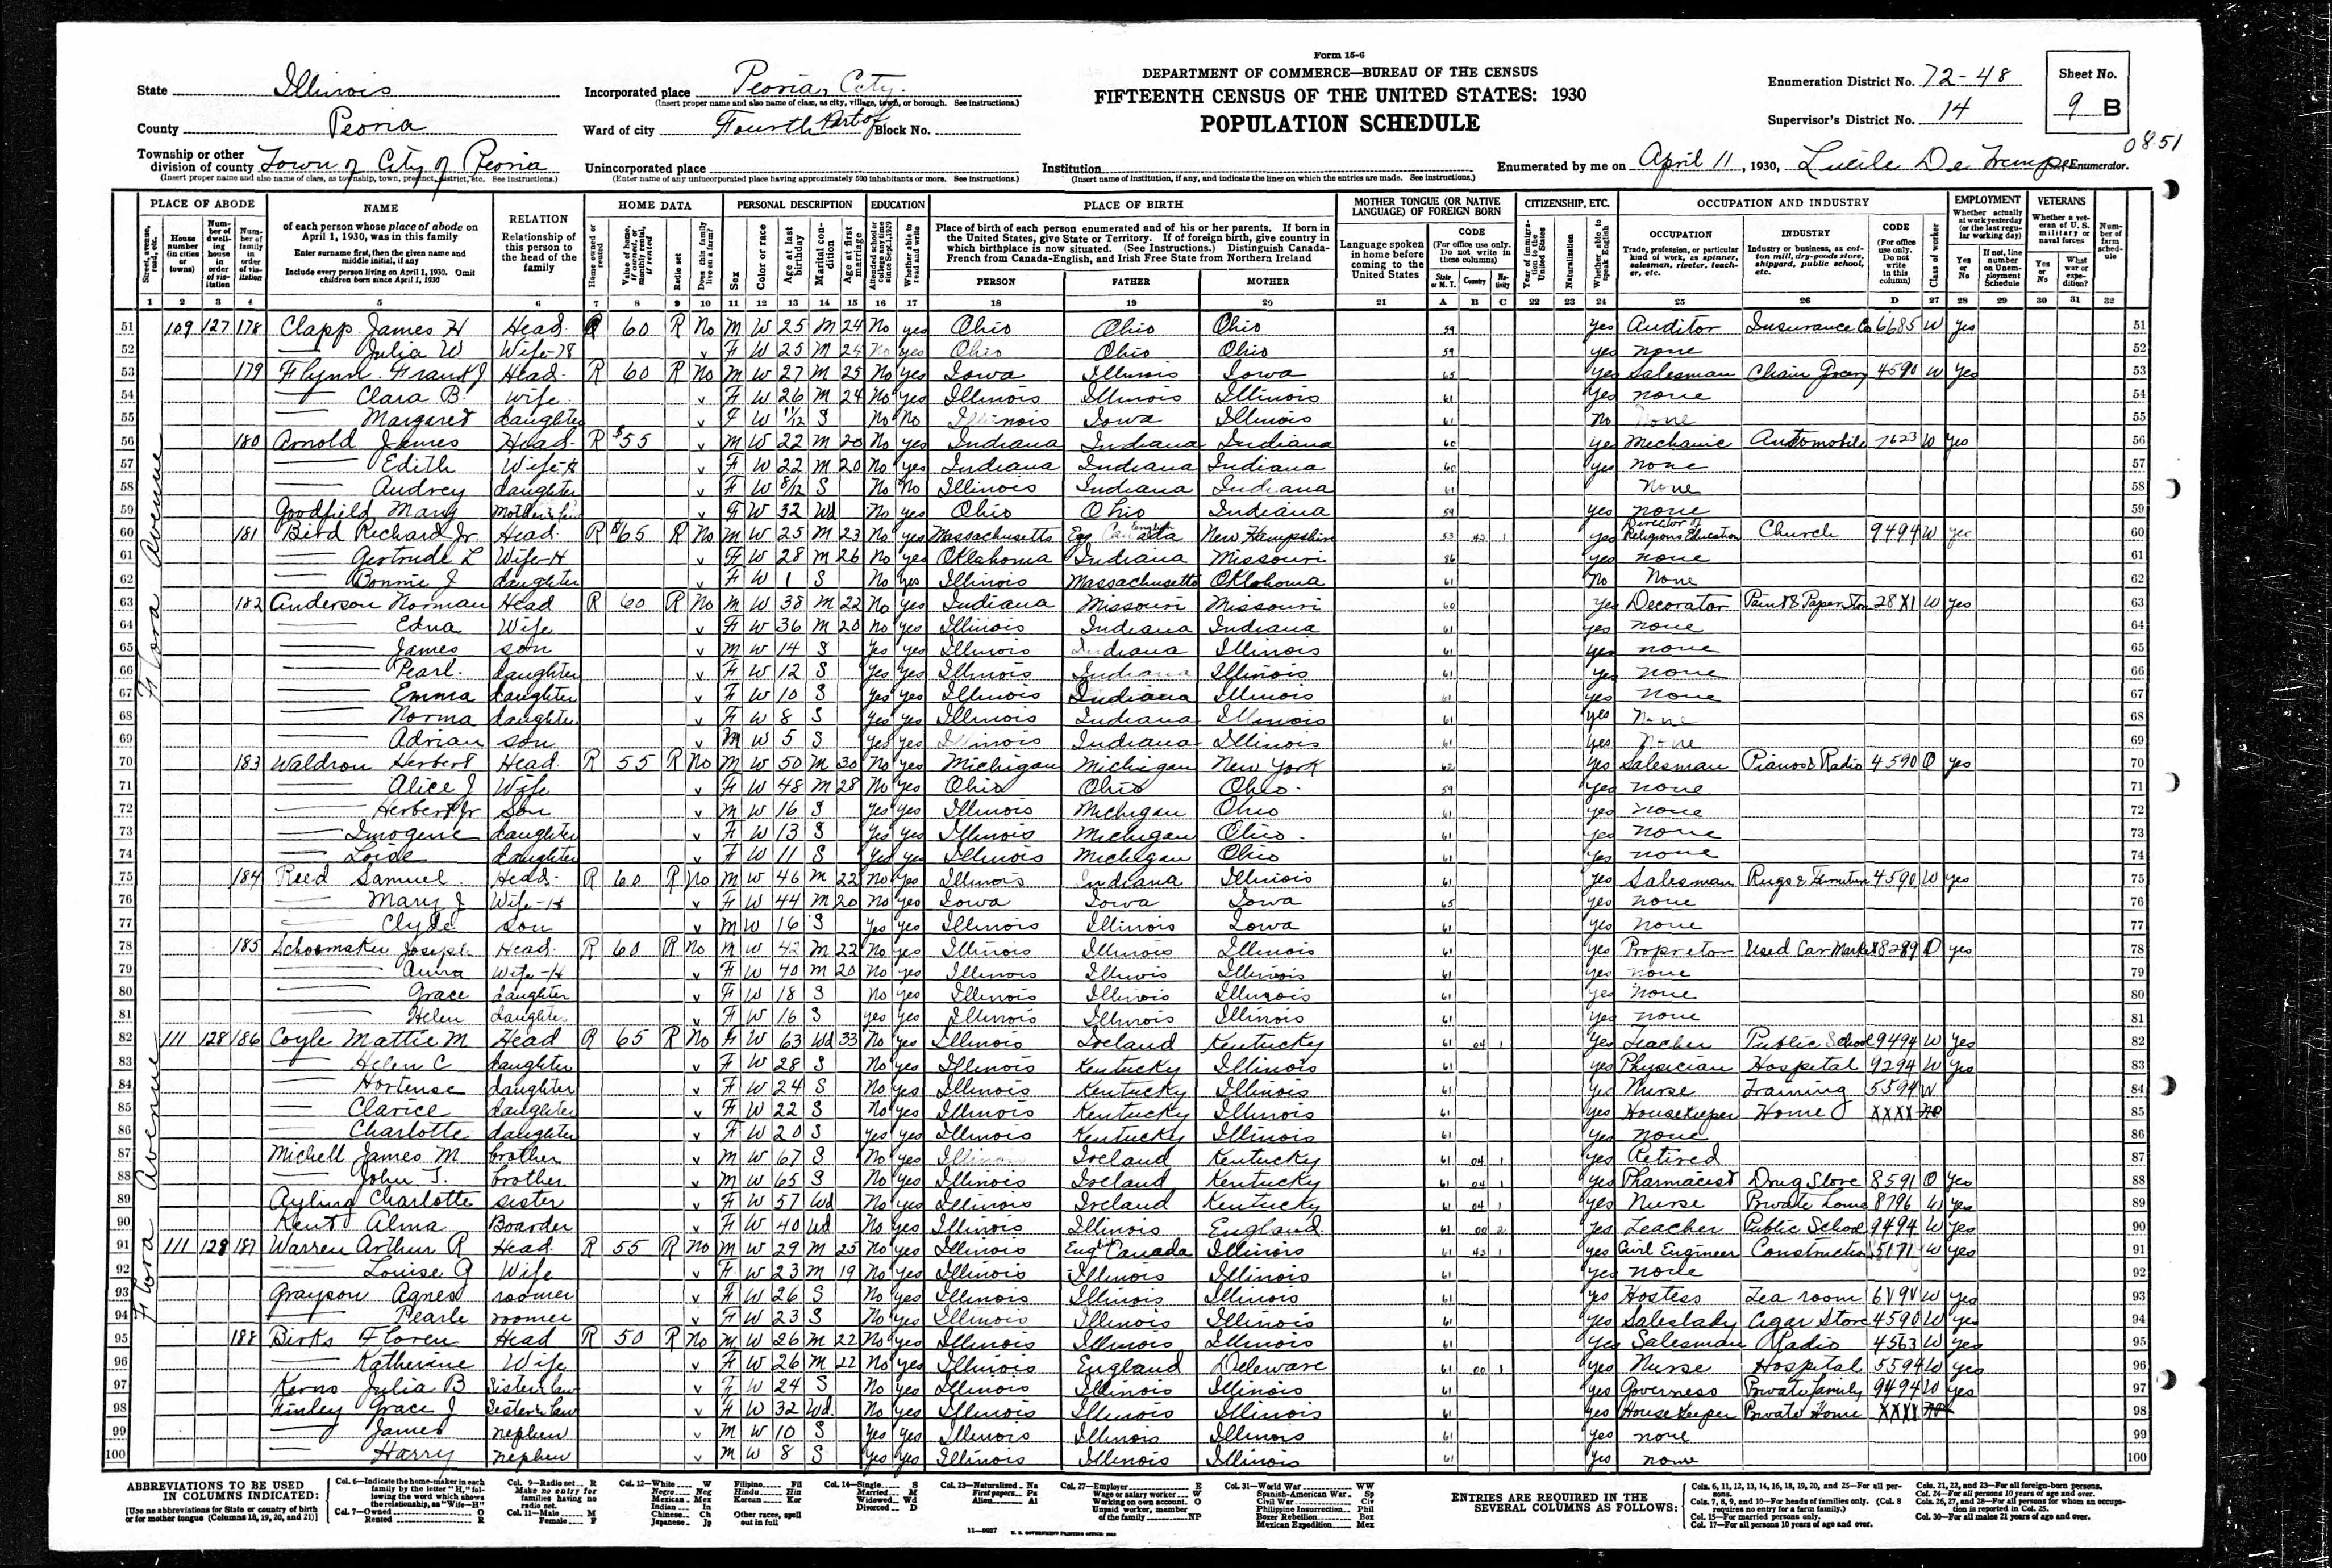 Form 15-6
DEPARTMENT OF COMMERCE—BUREAU OF THE CENSUS
FIFTEENTH CENSUS OF THE UNITED STATES: 1930
POPULATION SCHEDULE
State Illinois
County Peoria
Township or other division of county Town of City of Peoria
(Insert proper name and also name of class, as township, town, precinct, district, etc. See instructions.)
Incorporated place Peoria, City.
(Insert proper name and also name of class, as city, village, town, or borough. See instructions.)
Ward of city Fourth Part of Block No.
Unincorporated place
(Enter name of any unincorporated place having approximately 500 inhabitants or more. See instructions.)
Institution
(Insert name of institution, if any, and indicate the lines on which the entries are made. See instructions.)
Enumeration District No. 72-48
Supervisor's District No. 14
Sheet No. 9 B
0851
Enumerated by me on April 11, 1930, Lucile De Trempe, Enumerator.
PLACE OF ABODE NAME RELATION HOME DATA PERSONAL DESCRIPTION EDUCATION PLACE OF BIRTH MOTHER TONGUE (OR NATIVE LANGUAGE) OF FOREIGN BORN CITIZENSHIP, ETC. OCCUPATION AND INDUSTRY EMPLOYMENT VETERANS
Flora Avenue
51 109 127 178 Clapp James H Head R 60 R No M W 25 M 24 No yes Ohio Ohio Ohio 59 yes Auditor Insurance Co 6685 W yes 51
52 Julia W Wife-H v F W 25 M 24 No yes Ohio Ohio Ohio 59 yes none 52
53 179 Flynn Frank J Head R 60 R No M W 27 M 25 No yes Iowa Illinois Iowa 65 yes Salesman Chain Grocery 4590 W yes 53
54 Clara B Wife v F W 26 M 24 No yes Illinois Illinois Illinois 61 yes none 54
55 Margaret daughter v F W 11/12 S No No Illinois Iowa Illinois 61 No None 55
56 180 Arnold James Head R $55 v M W 22 M 20 No yes Indiana Indiana Indiana 60 yes Mechanic Automobile 7623 W yes 56
57 Edith Wife-H v F W 22 M 20 No yes Indiana Indiana Indiana 60 yes none 57
58 Audrey daughter v F W 8/12 S No No Illinois Indiana Indiana 61 None 58
59 Goodfield Mary v F W 32 Wd No yes Ohio Ohio Indiana 59 yes none 59
60 181 Bird Richard Jr. Head R $65 R No M W 25 M 23 No yes Massachusetts English Canada New Hampshire 53 42 1 yes Director of Religious Education Church 9494 W yes 60
61 Gertrude L Wife-H v F W 28 M 26 No yes Oklahoma Indiana Missouri 86 yes none 61
62 Bonnie J daughter v F W 1 S No Yes Illinois Massachusetts Oklahoma 61 No None 62
63 182 Anderson Norman Head R 60 R No M W 38 M 22 No yes Indiana Missouri Missouri 60 yes Decorator Paint & Paper Store 28X1 W yes 63
64 Edna Wife v F W 36 M 20 No yes Illinois Indiana Indiana 61 yes none 64
65 James son v M W 14 S Yes yes Illinois Indiana Illinois 61 yes none 65
66 Pearl. daughter v F W 12 S Yes Yes Illinois Indiana Illinois 61 yes none 66
67 Emma daughter v F W 10 S Yes yes Illinois Indiana Illinois 61 yes none 67
68 Norma daughter v F W 8 S Yes yes Illinois Indiana Illinois 61 yes None 68
69 Adrian son v M W 5 S Yes yes Illinois Indiana Illinois 61 yes None 69
70 183 Waldron Herbert Head R 55 R No M W 50 M 30 No yes Michigan Michigan New York 62 yes Salesman Pianos & Radio 4590 O yes 70
71 Alice J Wife v F W 48 M 28 No yes Ohio Ohio Ohio 59 yes none 71
72 Herbert Jr Son v M W 16 S Yes yes Illinois Michigan Ohio 61 yes none 72
73 Imogene daughter v F W 13 S Yes yes Illinois Michigan Ohio 61 yes none 73
74 daughter v F W 11 S Yes yes Illinois Michigan Ohio 61 yes none 74
75 184 Reed Samuel Head R 60 R No M W 46 M 22 No yes Illinois Indiana Illinois 61 yes Salesman Rugs & Furniture 4590 W yes 75
76 Mary J Wife-H v F W 44 M 20 No yes Iowa Iowa Iowa 65 yes none 76
77 Clyde son v M W 16 S Yes yes Illinois Illinois Iowa 61 yes none 77
78 185 Schoemaker Joseph Head R 60 R No M W 42 M 22 No yes Illinois Illinois Illinois 61 yes Propretor Used Car Market 8289 O yes 78
79 Anna Wife-H v F W 40 M 20 No yes Illinois Illinois Illinois 61 yes none 79
80 Grace daughter v F W 18 S No yes Illinois Illinois Illinois 61 yes none 80
81 Helen daughter v F W 16 S yes yes Illinois Illinois Illinois 61 yes none 81
82 111 128 186 Coyle Mattie M Head R 65 R No F W 63 Wd 33 No yes Illinois Ireland Kentucky 61 04 1 yes Teacher Public School 9494 W yes 82
83 Helen C daughter v F W 28 S No yes Illinois Kentucky Illinois 61 yes Physician Hospital 9294 W yes 83
84 Hortense daughter v F W 24 S No yes Illinois Kentucky Illinois 61 yes Nurse Training 5594 W 84
85 Clarice daughter v F W 22 S No yes Illinois Kentucky Illinois 61 yes Housekeeper Home XXXX no 85
86 Charlotte daughter v F W 20 S Yes yes Illinois Kentucky Illinois 61 yes none 86
87 Michell James M brother v M W 67 S No yes Illinois Ireland Kentucky 61 04 1 yes Retired 87
88 John T. brother v M W 65 S No yes Illinois Ireland Kentucky 61 04 1 yes Pharmacist Drug Store 8591 O yes 88
89 Ayling Charlotte sister v F W 57 Wd No yes Illinois Ireland Kentucky 61 04 1 yes Nurse Private home 8796 W yes 89
90 Kent Alma Boarder v F W 40 Wd No yes Illinois Illinois England 61 00 2 yes Teacher Public School 9494 W yes 90
91 111 128 187 Warren Arthur R Head R 55 R No M W 29 M 25 No yes Illinois Eng Canada Illinois 61 42 1 yes Civil Engineer Construction 5171 W yes 91
92 Louise G Wife v F W 23 M 19 No yes Illinois Illinois Illinois 61 yes none 92
93 Grayson Agnes roomer v F W 26 S No yes Illinois Illinois Illinois 61 yes Hostess Tea room 6V9V W yes 93
94 Pearle roomer v F W 23 S No yes Illinois Illinois Illinois 61 yes Saleslady Cigar Store 4590 W yes 94
95 188 Birks Floren Head R 50 R No M W 26 M 22 No yes Illinois Illinois Illinois 61 yes Salesman Radio 4563 W yes 95
96 Katherine Wife v F W 26 M 22 No yes Illinois England Deleware 61 00 1 yes Nurse Hospital 5594 W yes 96
97 Kerns Julia B Sister in law v F W 24 S No yes Illinois Illinois Illinois 61 yes Governess Private family 9494 W yes 97
98 Finley Grace J Sister in law v F W 32 Wd. No yes Illinois Illinois Illinois 61 yes Housekeeper Private Home XXXX 98
99 James nephew v M W 10 S Yes yes Illinois Illinois Illinois 61 yes none 99
100 Harry nephew v M W 8 S Yes yes Illinois Illinois Illinois 61 yes none 100
ABBREVIATIONS TO BE USED IN COLUMNS INDICATED:
[Use no abbreviations for State or country of birth or for mother tongue (Columns 18, 19, 20, and 21)]
ENTRIES ARE REQUIRED IN THE SEVERAL COLUMNS AS FOLLOWS: